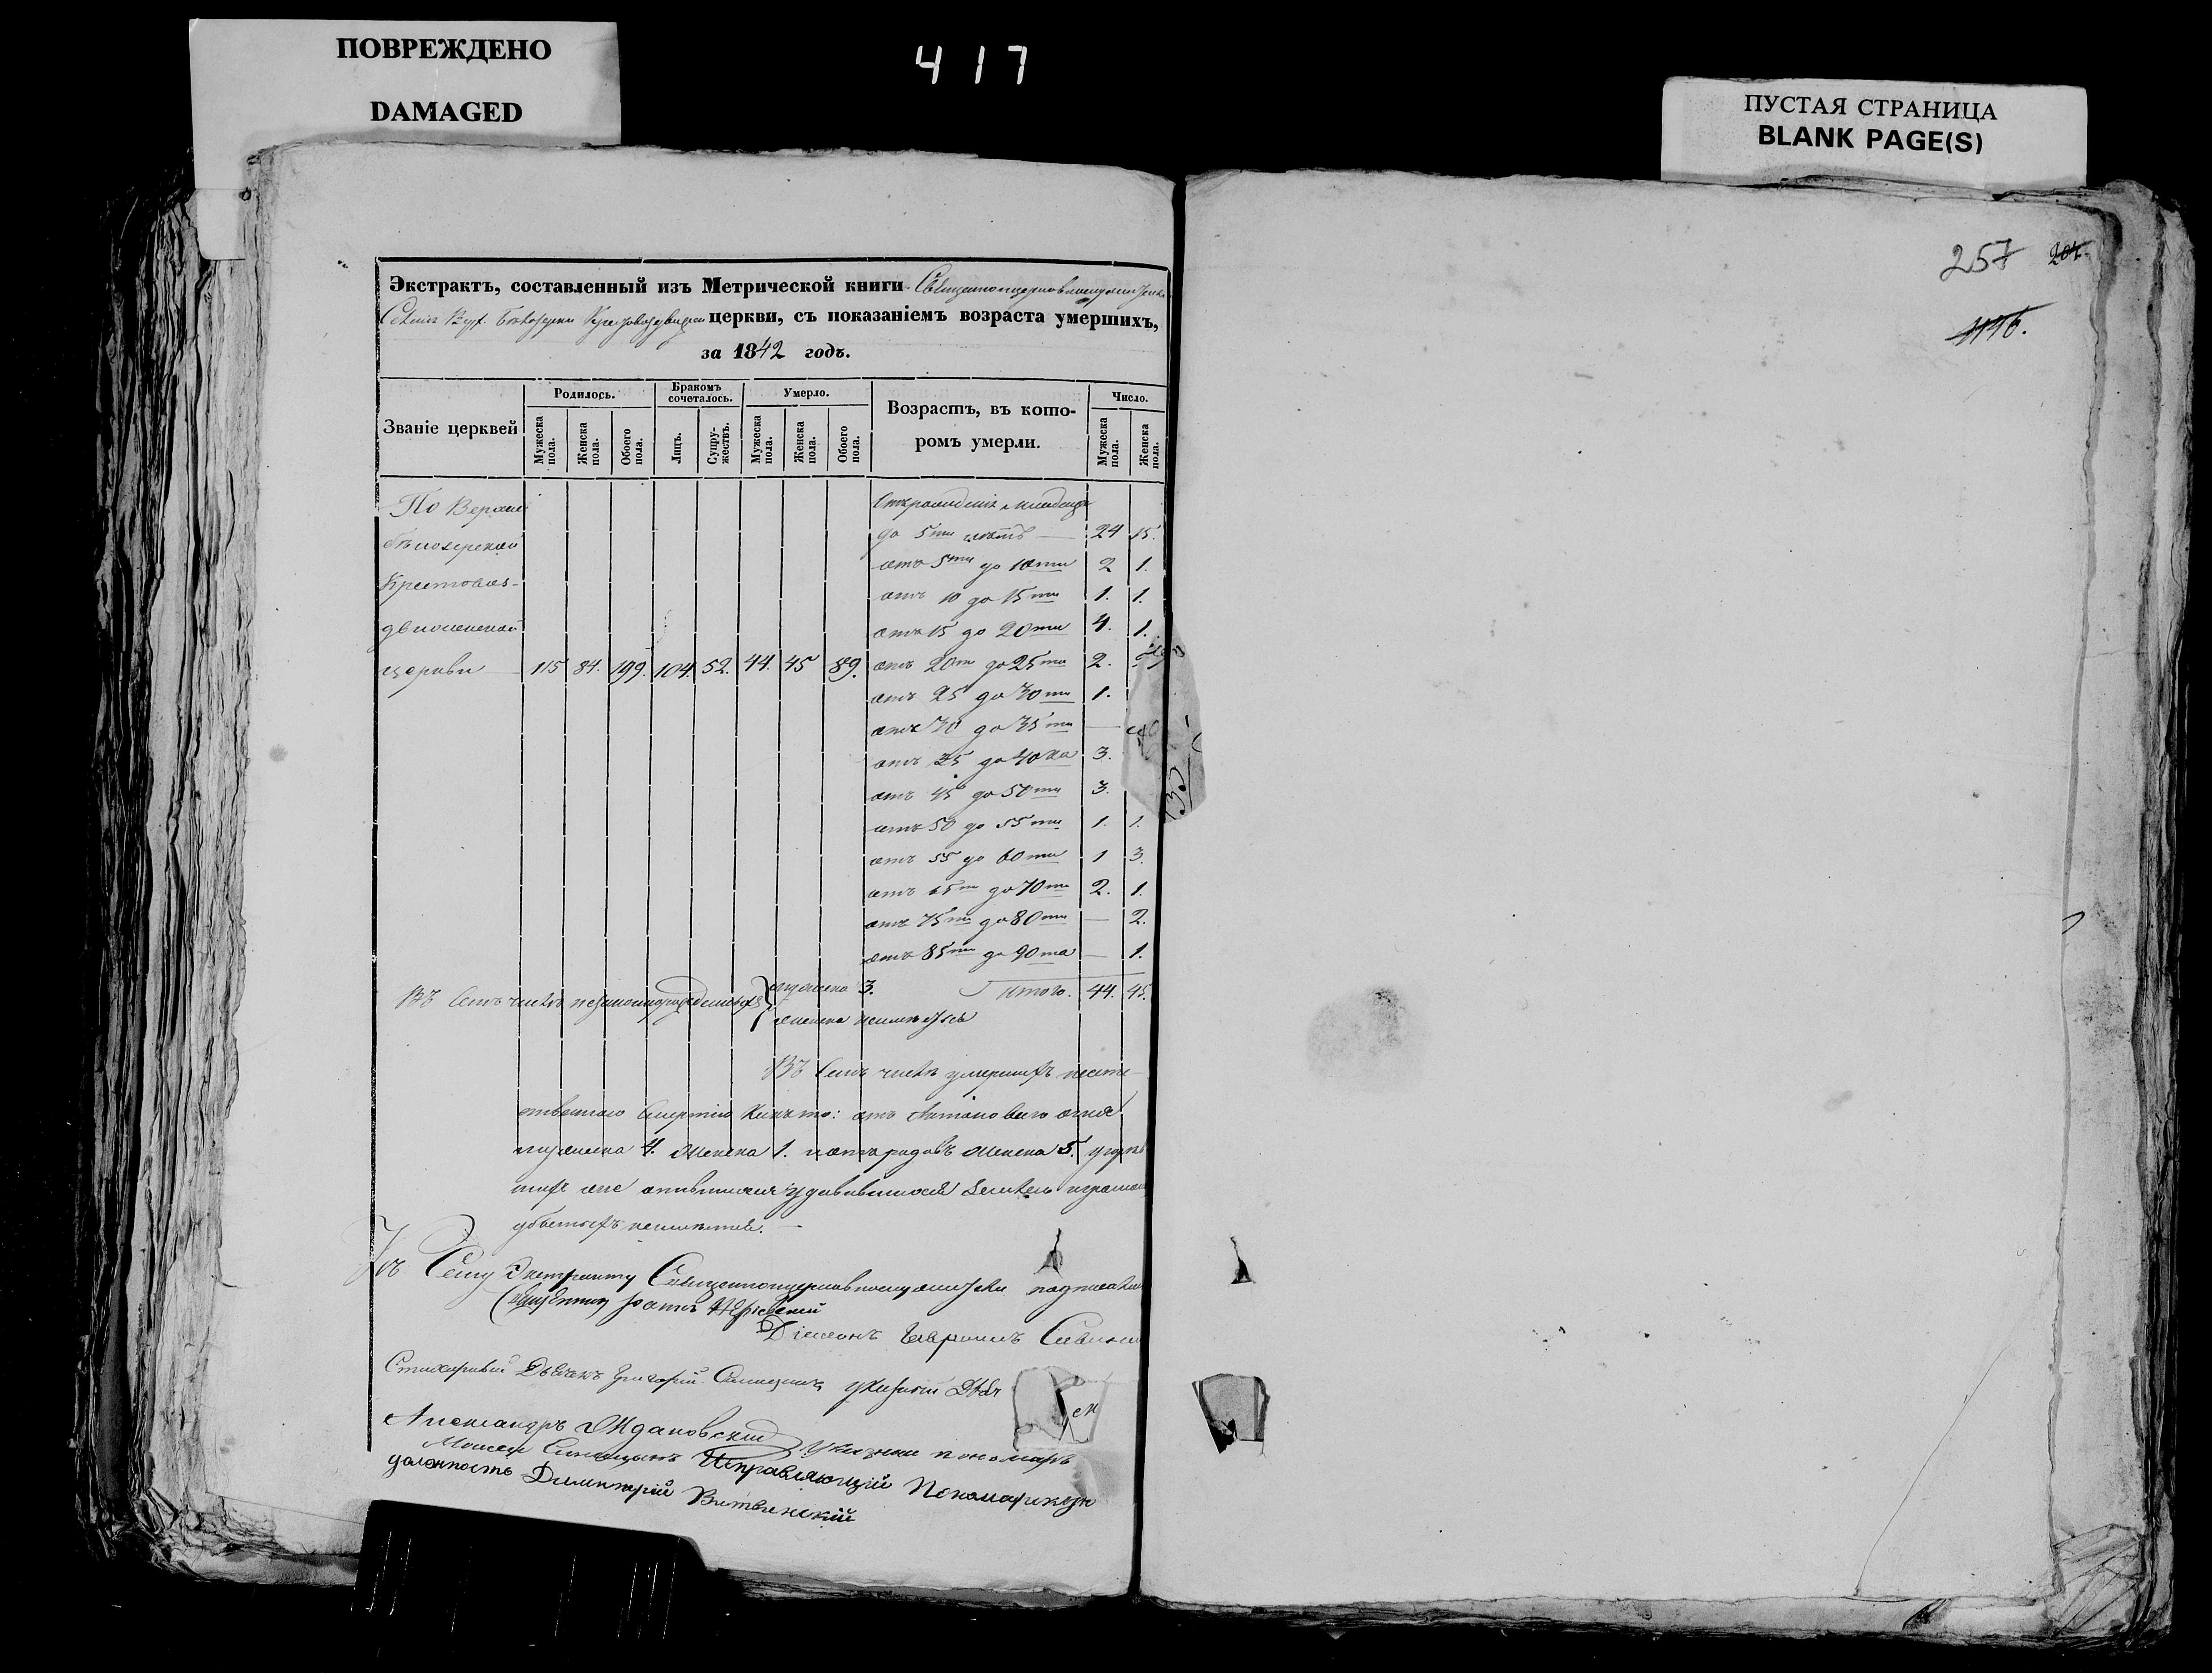 ПОВРЕЖДЕНО
DAMAGED
417
ПУСТАЯ СТРАНИЦА
BLANK PAGE(S)
257 204.
1116.
Экстрактъ, составленный изъ Метрической книги
церкви, съ показаніемъ возраста умершихъ,
за 1842 годъ.
Званіе церквей
Родилось.
Мужеска пола.
Женска пола.
Обоего пола.
Бракомъ сочеталось.
Лицъ.
Супружествъ.
Умерло.
Мужеска пола.
Женска пола.
Обоего пола.
Возрастъ, въ которомъ умерли.
Число.
Мужеска пола.
Женска пола.
По Верхне
бѣлозерской
Крестовоз-
движенской
церкви 115 84. 199. 104. 52. 44. 45 89.
Отъ рожденія младенцы
до 5ти лѣтъ — 24 15.
отъ 5ти до 10ти 2 1.
отъ 10 до 15ти 1. 1.
отъ 15 до 20ти 4. 1.
отъ 20ти до 25ти 2.
отъ 25 до 30ти 1.
отъ 30 до 35ти —
отъ 35 до 40ка 3.
отъ 45 до 50ти 3.
отъ 50 до 55ти 1. 1.
отъ 55 до 60ти 1 3.
отъ 65ти до 70ти 2. 1.
отъ 75ти до 80ти — 2.
отъ 85ти до 90та — 1.
Итого. 44. 45.
Въ семъ числѣ незаконнорожденныхъ мужеска 3.
женска неимѣется
Въ семъ числѣ умершихъ неесте-
ственною смертію какъ то: отъ Антонова огня
мужеска 4. женска 1. и отъ родовъ женска 5.
убитыхъ неимѣется. —
Къ сему Экстракту Священноцерковнослужители подписались
Священникъ Іоаннъ
Діаконъ Гавріилъ
Стихарный Дьячокъ Григорій указный Дьяч
Александръ Ждановскій Указный пономарь
Моисей Синицынъ Исправляющій Пономарскую
должность Димитрій Витвинскій